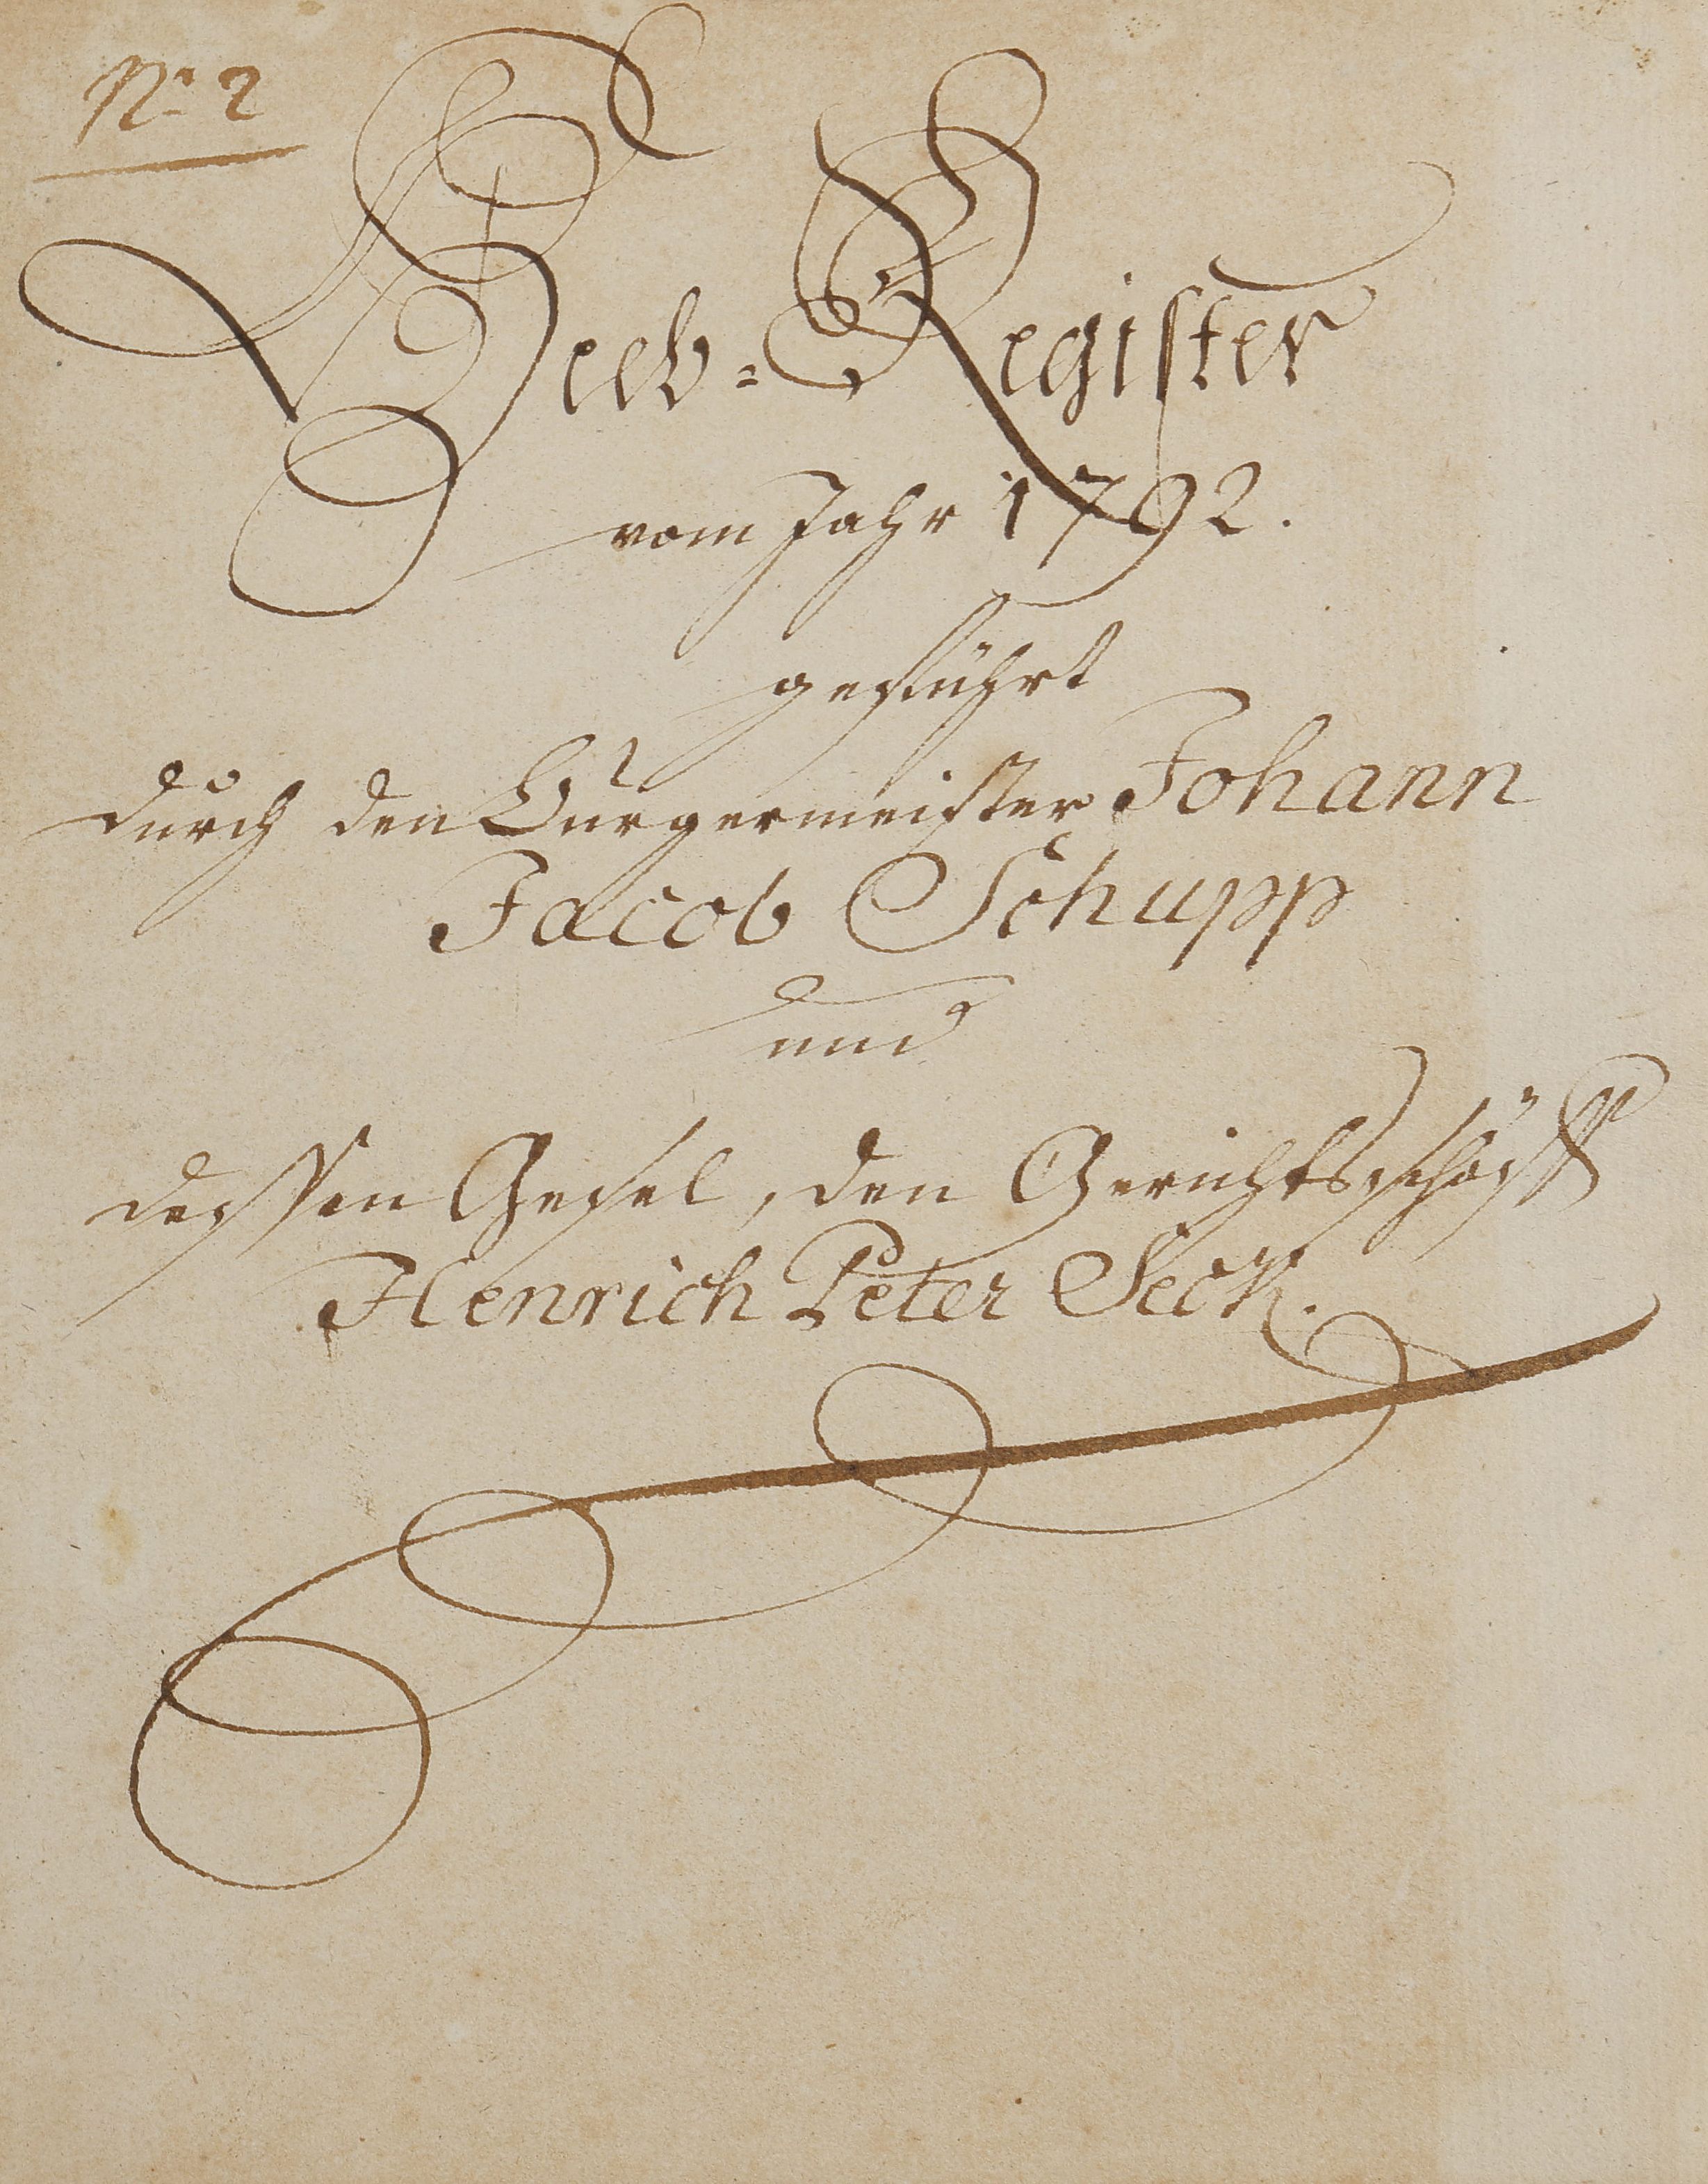 No. 2
Heeb-Register
vom Jahr 1792.
geführt
durch den Burgermeister Johann
Jacob Schupp
und
dessen Gesel, den Gerichtsschöff
Henrich Peter Seck.